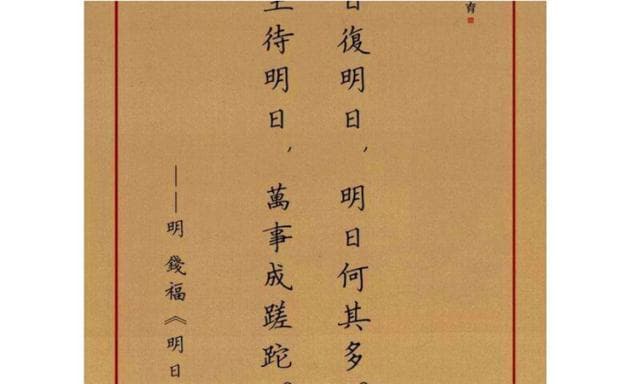 日復明日，明日何其多。
生待明日，萬事成蹉跎。
——明 錢福《明日